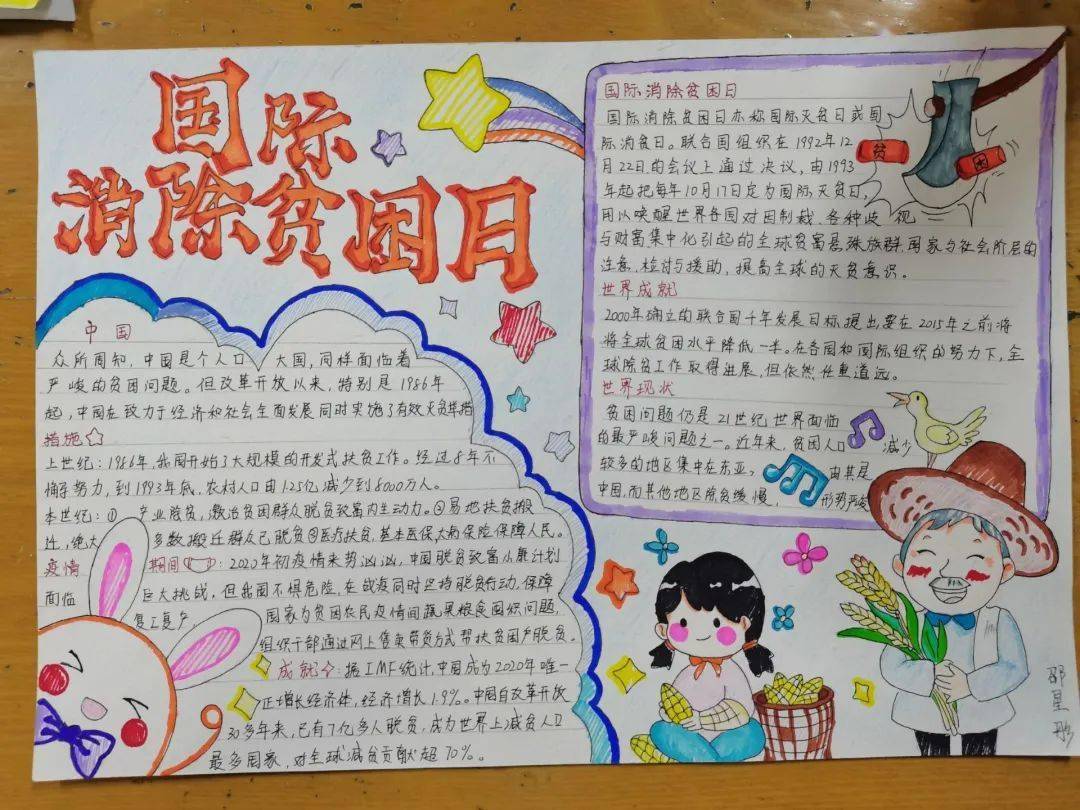 国际
消除贫困日
中国
众所周知，中国是个人口大国，同样面临着
严峻的贫困问题。但改革开放以来，特别是1986年
起，中国在致力于经济和社会全面发展同时实施了有效灭贫举措
措施
上世纪：1986年，我国开始了大规模的开发式扶贫工作。经过8年不
懈努力，到1993年底，农村人口由1.25亿减少到8000万人。
本世纪：① 产业脱贫，激活贫困群众脱贫致富内生动力。②易地扶贫搬
迁，绝大多数搬迁群众已脱贫③医疗扶贫，基本医保大病保险保障人民。
疫情期间：2020年初疫情来势汹汹，中国脱贫致富小康计划
面临巨大挑战，但我国不惧危险，在战疫同时坚持脱贫行动，保障
复工复产，国家为贫困农民疫情间蔬果粮食囤积问题，
组织干部通过网上售卖带货方式帮扶贫困户脱贫。
成就：据IMF统计，中国成为2020年唯一
正增长经济体，经济增长1.9%。中国自改革开放
30多年来，已有7亿多人脱贫，成为世界上减贫人口
最多国家，对全球减贫贡献超70%。
国际消除贫困日
国际消除贫困日亦称国际灭贫日或国
际消贫日。联合国组织在1992年12
月22日的会议上通过决议，由1993
年起把每年10月17日定为国际灭贫日，
用以唤醒世界各国对因制裁、各种歧视
与财富集中化引起的全球贫富悬殊族群、国家与社会阶层的
注意、检讨与援助，提高全球的灭贫意识。
贫
困
世界成就
2000年确立的联合国千年发展目标提出，要在2015年之前将
将全球贫困水平降低一半。在各国和国际组织的努力下，全
球除贫工作取得进展，但依然任重道远。
世界现状
贫困问题仍是21世纪世界面临
的最严峻问题之一。近年来，贫困人口减少
较多的地区集中在东亚，尤其是
中国，而其他地区除贫缓慢，形势严峻
邵星彤